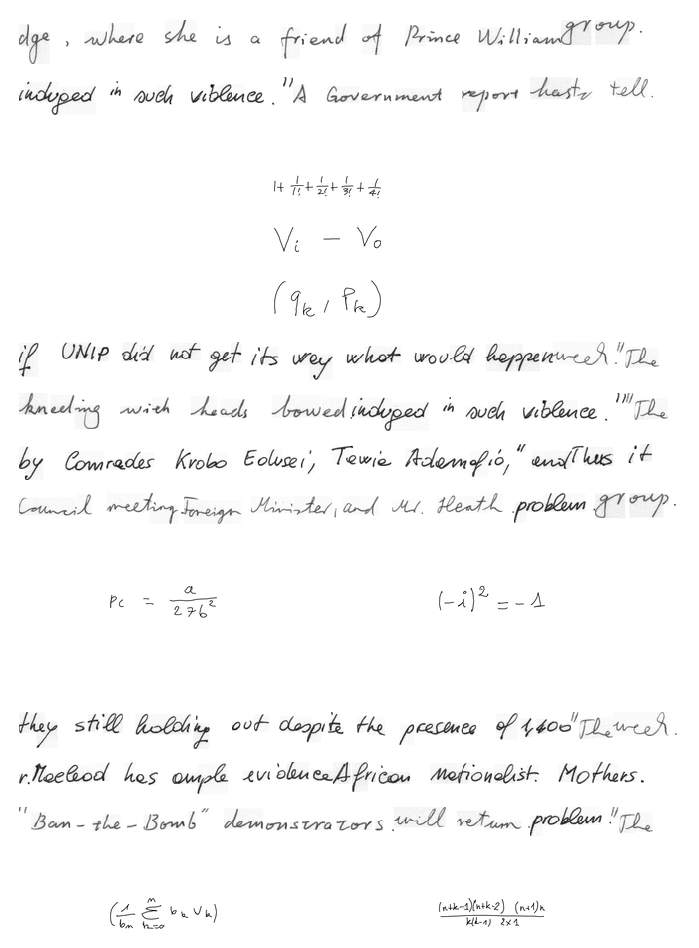 dge, where she is a friend of Prince William group.
indulged in such violence." A Government report has to tell.
1+\frac{1}{1!}+\frac{1}{2!}+\frac{1}{3!}+\frac{1}{4!}
V_i - V_0
(q_k, p_k)
if UNIP did not get its way what would happen week. "The
kneeling with heads bowed indulged in such violence." "The
by Comrades Krobo Edusei, Tawia Adamafio," and Thus it
Council meeting. Foreign Minister, and Mr. Heath problem. group.
p_c = \frac{a}{27b^2}
(-i)^2 = -1
they still holding out despite the presence of 1,400 "The week.
r. Macleod has ample evidence African nationalist. Mothers.
"Ban-the-Bomb" demonstrators. will return problem. "The
(\frac{1}{b_n} \sum_{k=0}^{n} b_k v_k)
\frac{(n+k-1)(n+k-2) (n+1)n}{k(k-1) 2×1}